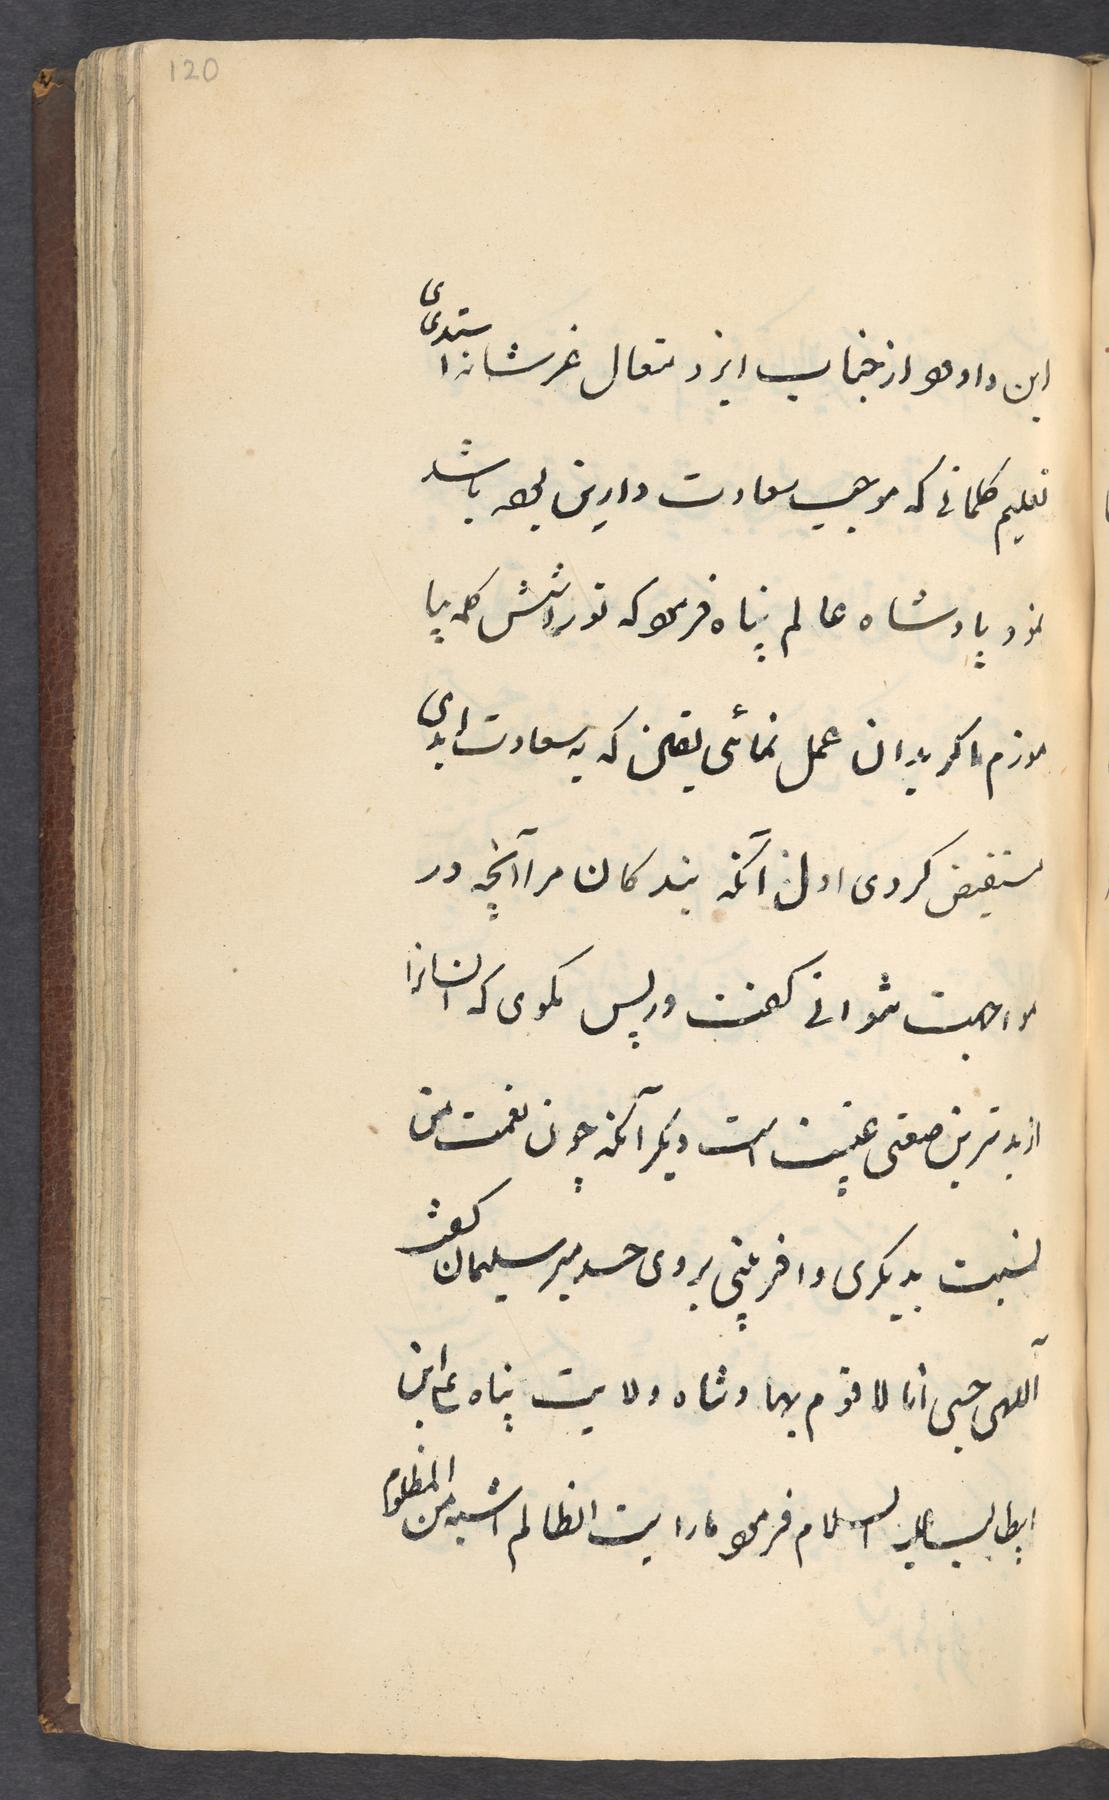 120
ابن داود از جناب ایزد متعال عز شانه استدعای
تعلیم کلماتی که موجب سعادت دارین بود باشد
نمود پادشاه عالم پناه فرمود که تو را شش کلمه بیا
موزم اگر بدان عمل نمائی یقین که به سعادت ابدی
مستفیض کردی اول آنکه بندکان مرا آنچه در
مواجهت نتوانی کفت در پس مکوی که انسانرا
از بدترین صفتی غیبت است دیکر آنکه چون نعمت من
نسبت بدیکری وافر بینی بروی حسد مبر سلیمان کفت
آلهی حسبی انا لا اقوم بهما و شاه ولایت پناه علی ابن
ابیطالب علیه السلام فرمود ما رایت الظالم اشبه من المظلوم